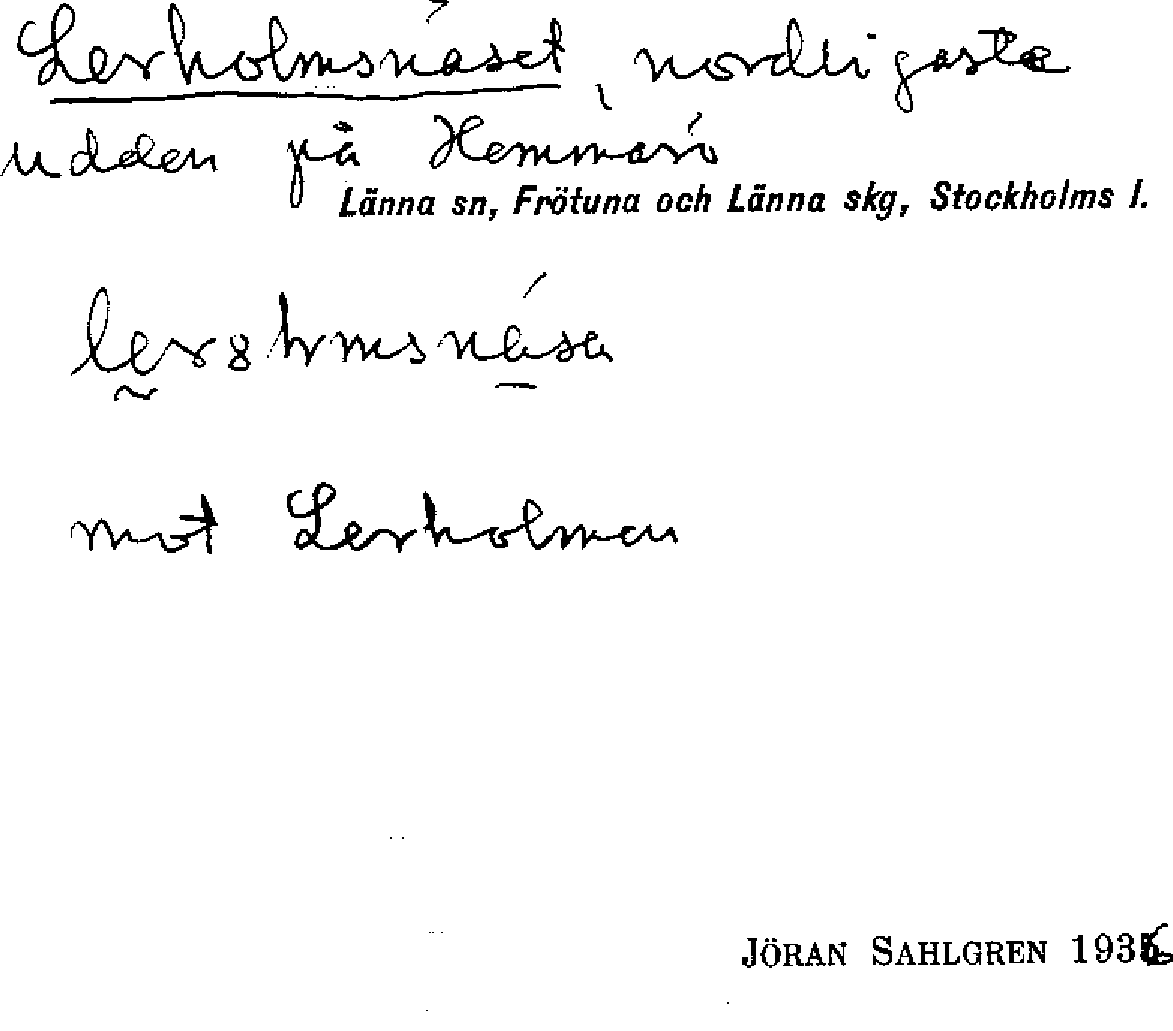 Lerholmsnäset, nordligaste
udden på Hemmarö
Länna sn, Frötuna och Länna skg, Stockholms l.
mot Lerholmen
JÖRAN SAHLGREN 1936